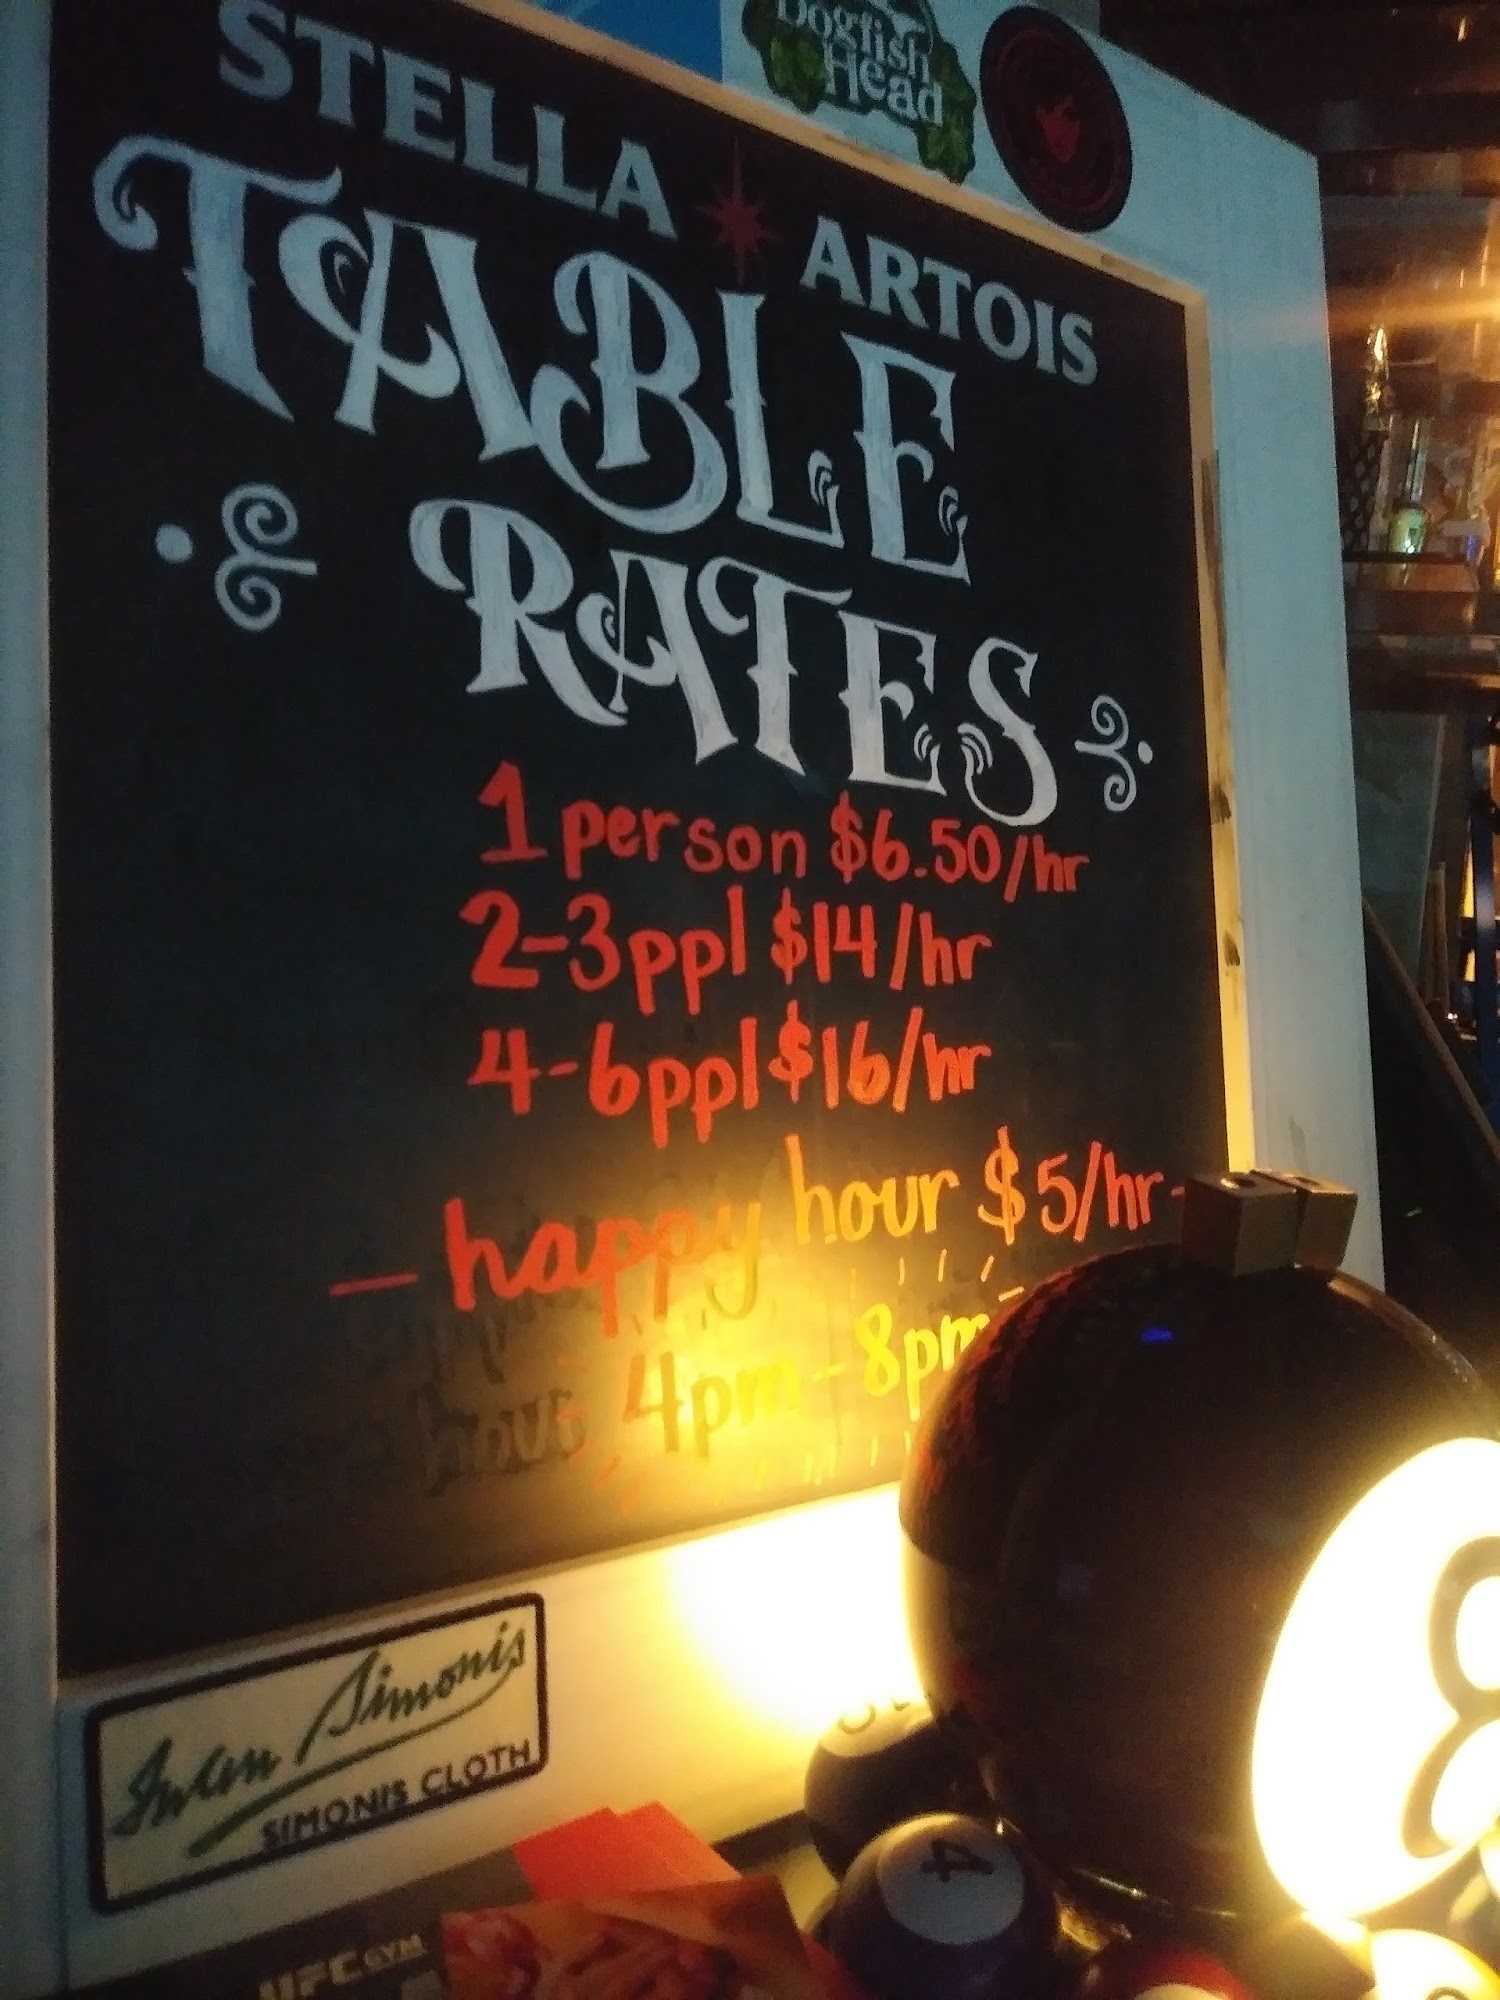 Dogfish
Head
STELLA ARTOIS
TABLE
RATES
1 person $6.50/hr
2-3ppl $14/hr
4-6ppl $16/hr
- happy hour $5/hr-
4pm-8pm
Iwan Simonis
SIMONIS CLOTH
UFC GYM
8
4